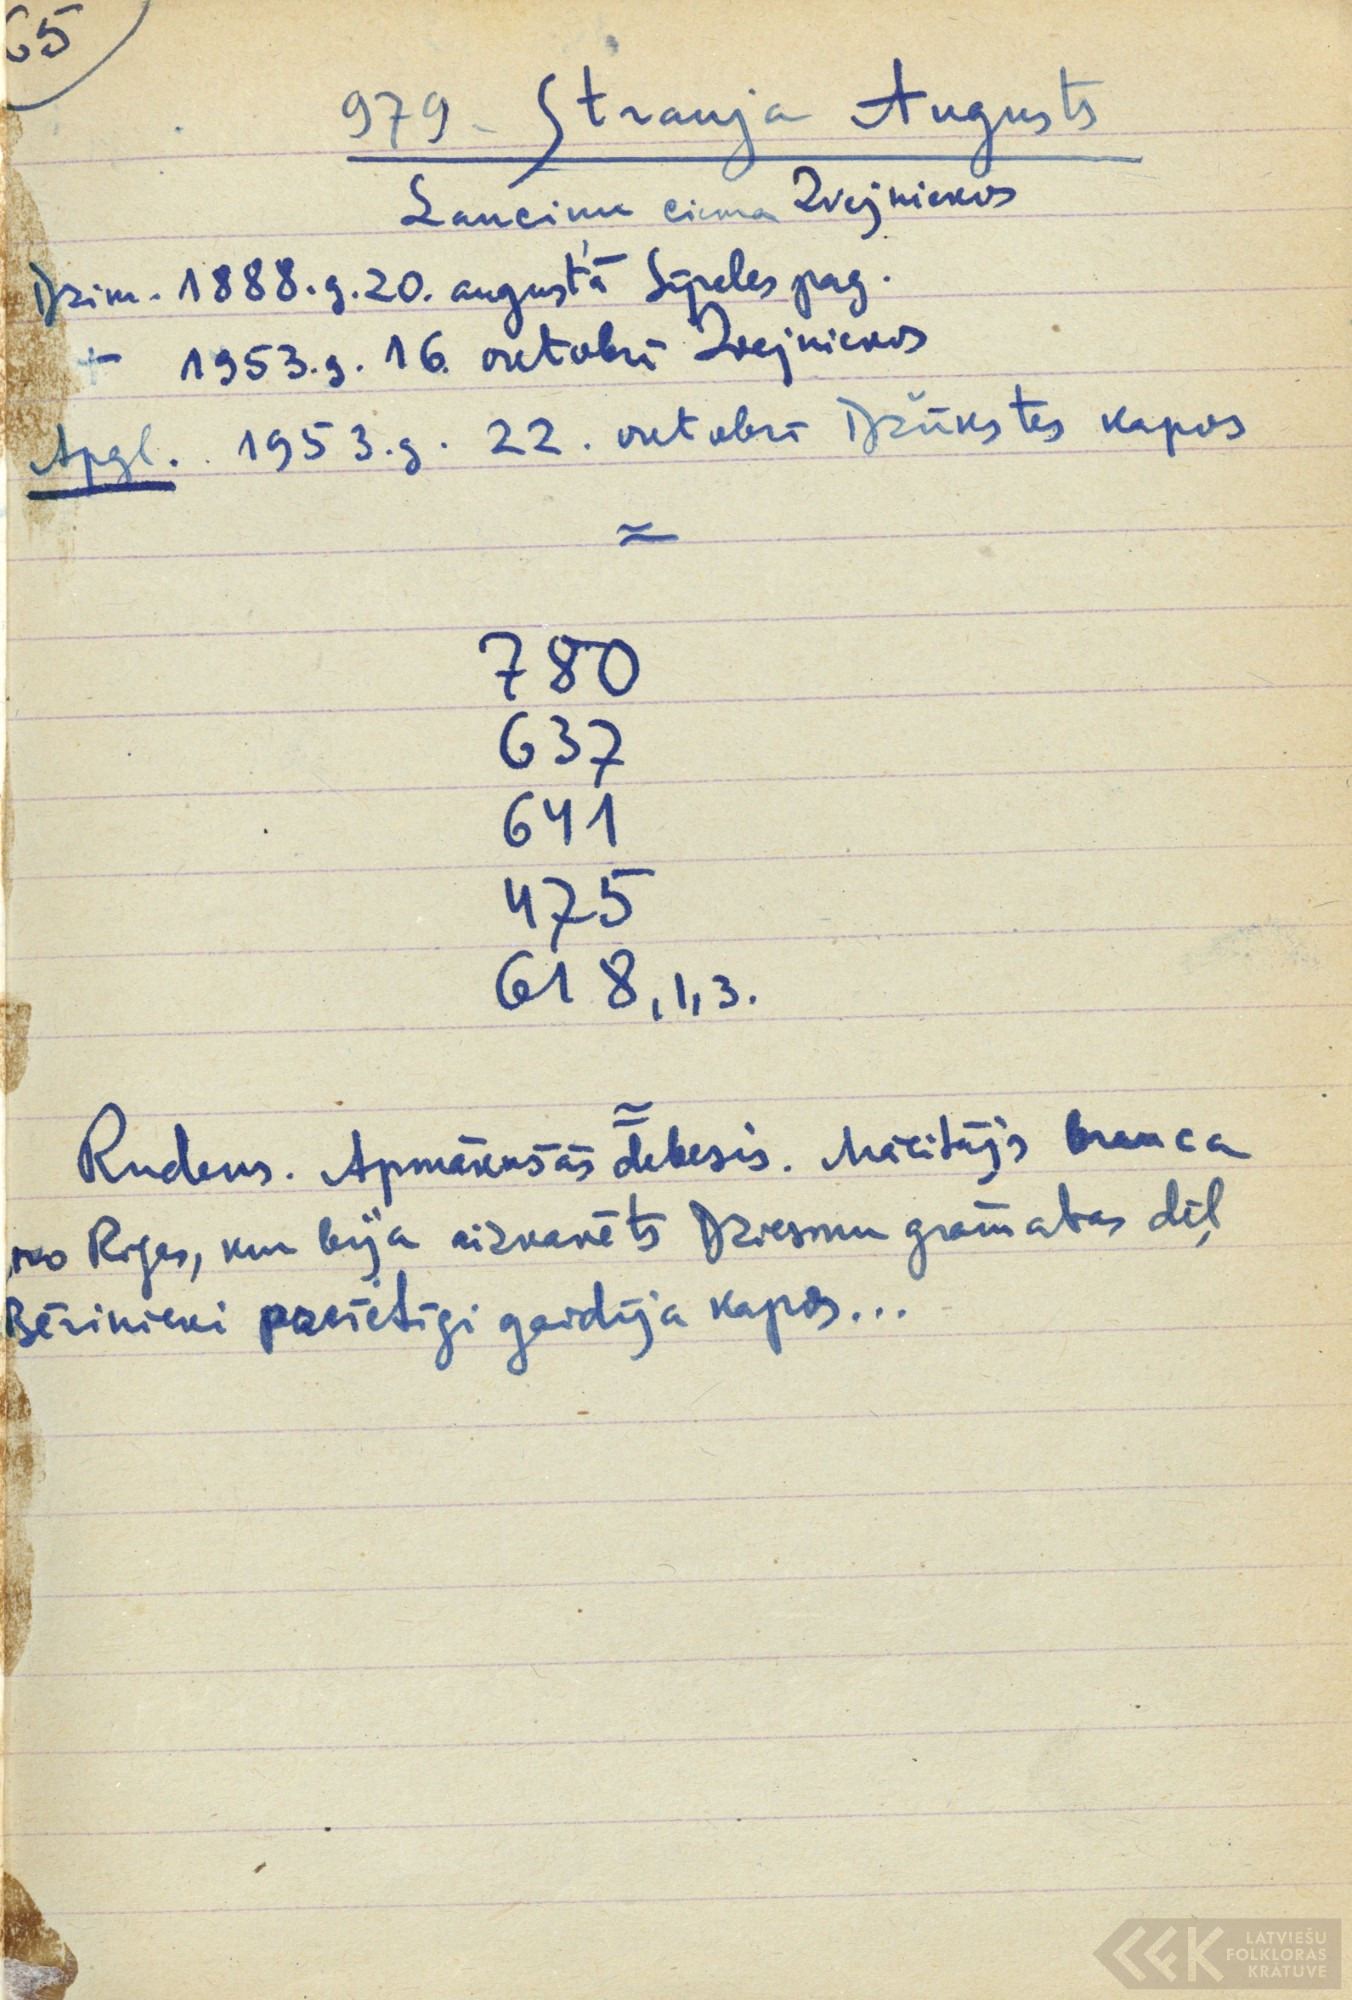 65
979. Strauja Augusts
Lancinu ciema Zvejniekos
Dzim. 1888.g.20. augustā Sīpeles pag.
+ 1953.g. 16. oktobrī Zvejniekos
Apgl. 1953.g. 22. oktobrī Džūkstes kapos
780
637
641
475
618,1,3.
Rudens. Apmākušās debesis. Mācītājs brauca
no Rīgas, kur bija aizkavēts Dziesmu grāmatas dēļ
Bērinieki pacietīgi gaidīja kapos...
LATVIEŠU
FOLKLORAS
KRĀTUVE